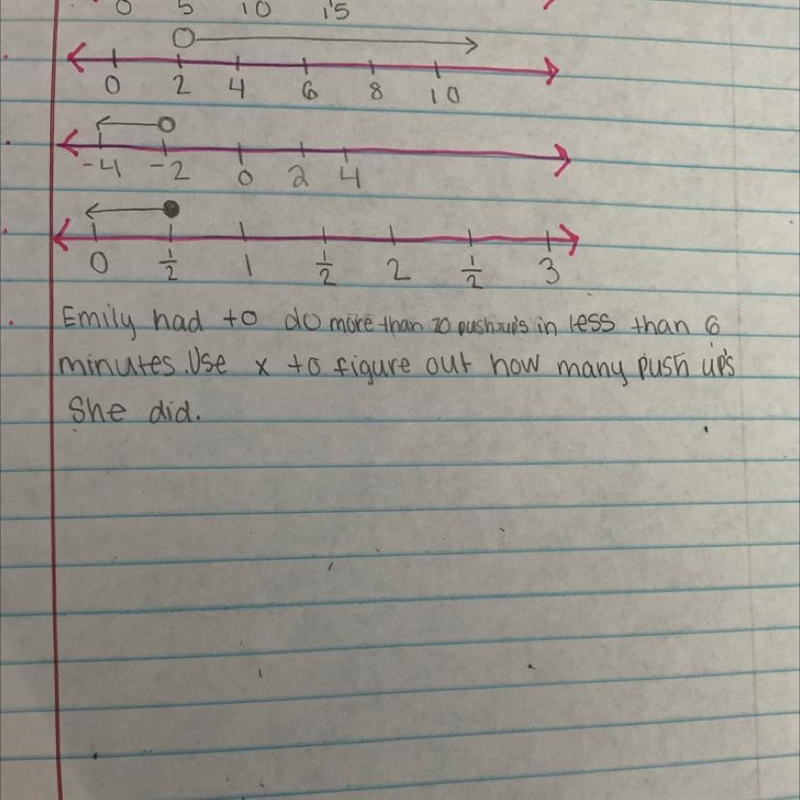 0 5 10 15
0 2 4 6 8 10
-4 -2 0 2 4
0 1/2 1 1/2 2 1/2 3
Emily had to do more than 20 push-up's in less than 6
minutes. Use x to figure out how many push up's
she did.